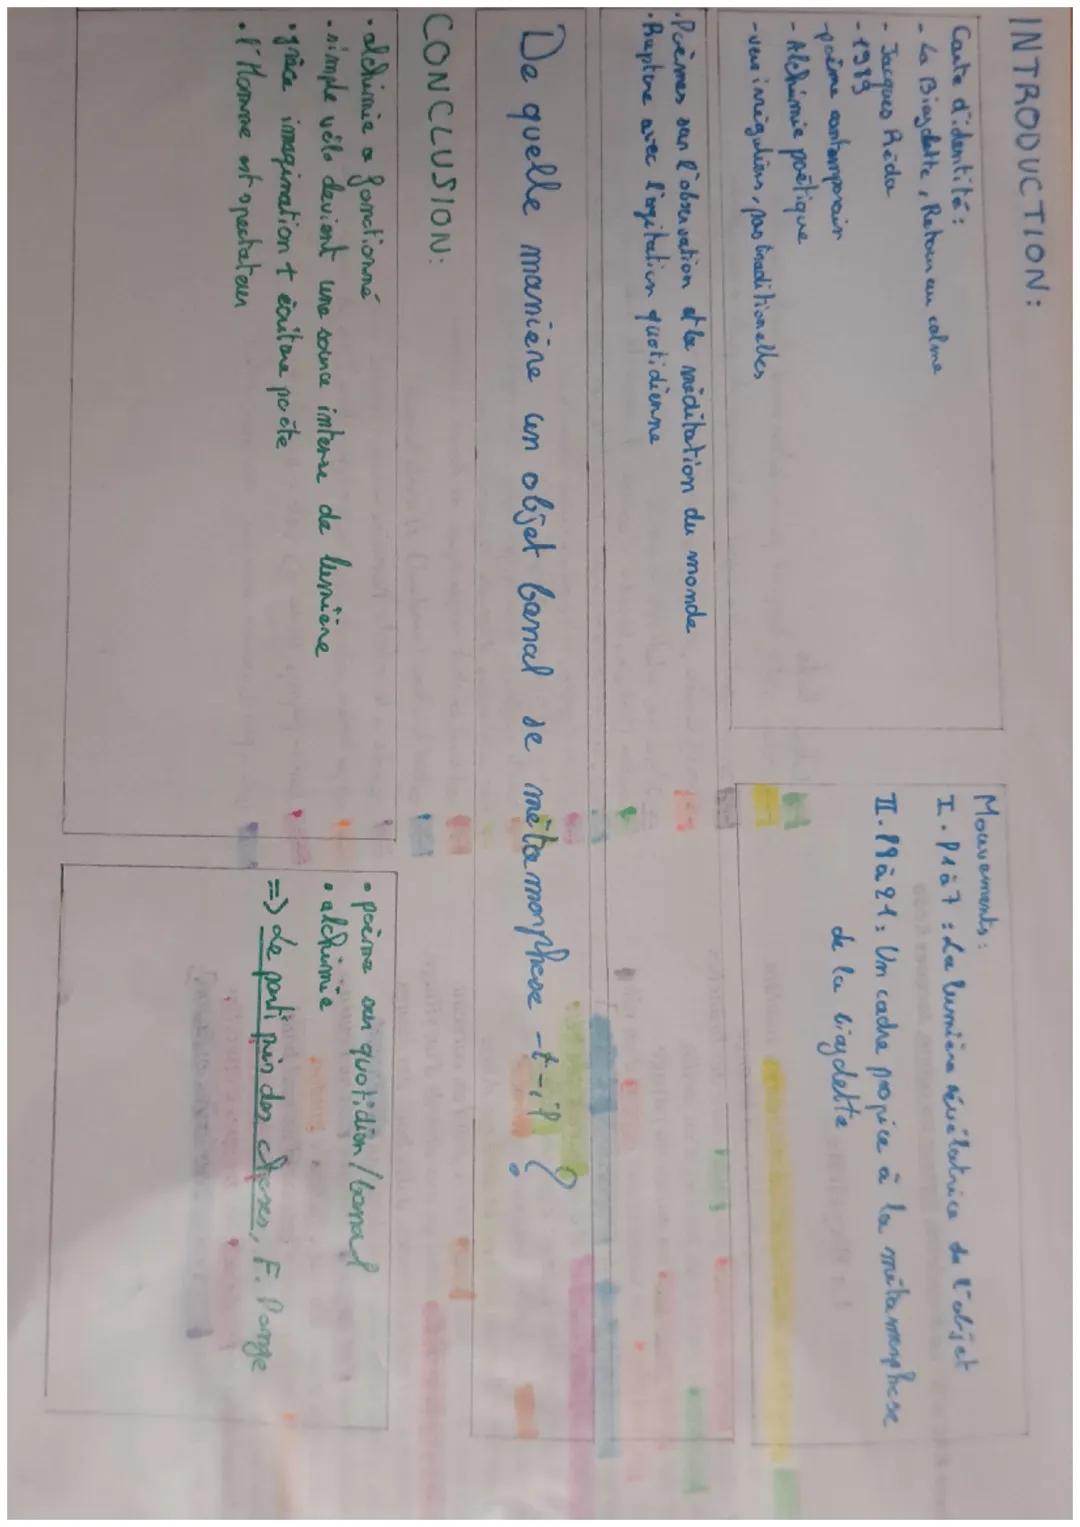 INTRODUCTION:
Carte d'identité:
- La Bicyclette, Retour au calme
- Jacques Réda
- 1989
- poème contemporain
- Alchimie poétique
- vers irréguliers, pas traditionelles
Mouvements:
I. P1 à 7 : La lumière révélatrice de l'objet
II. P9 à 21 : Un cadre propice à la métamorphose
de la bicyclette
• Poèmes sur l'observation et la méditation du monde
• Rupture avec l'agitation quotidienne
De quelle manière un objet banal se métamorphose-t-il ?
CONCLUSION:
• alchimie a fonctionné
• simple vélo devient une source intense de lumière
• grâce imagination + écriture poète
• l'Homme est spectateur
• poème sur quotidien/banal
• alchimie
=> Le parti pris des choses, F. Ponge